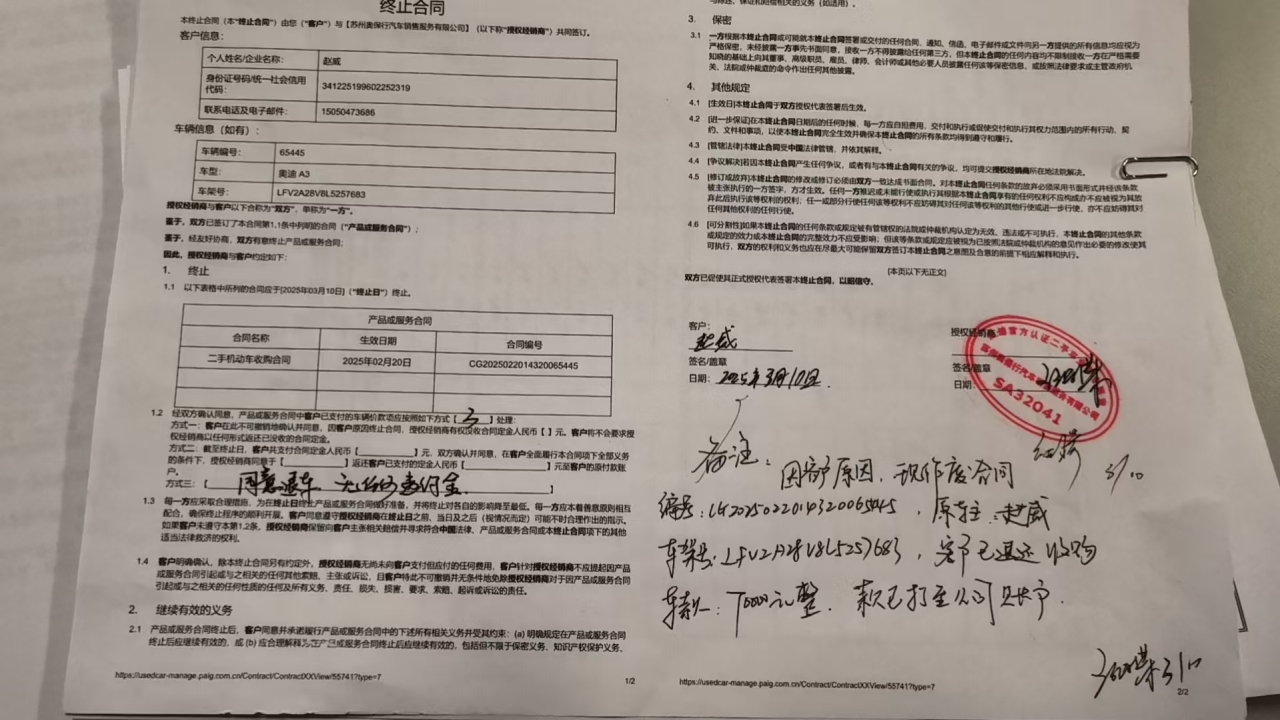 终止合同
本终止合同（本“终止合同”）由您（“客户”）与【苏州奥保行汽车销售服务有限公司】（以下称“授权经销商”）共同签订。
客户信息：
个人姓名/企业名称： 赵威
身份证号码/统一社会信用代码： 341225199602252319
联系电话及电子邮件： 15050473686
车辆信息（如有）：
车辆编号： 65445
车型： 奥迪 A3
车架号： LFV2A28V8L5257683
授权经销商与客户以下合称为“双方”，单称为“一方”。
鉴于，双方已签订了本合同第1.1条中列明的合同（“产品或服务合同”）；
鉴于，经友好协商，双方有意终止产品或服务合同；
因此，授权经销商与客户约定如下：
1. 终止
1.1 以下表格中所列的合同应于[2025年03月10日]（“终止日”）终止。
产品或服务合同
合同名称 生效日期 合同编号
二手机动车收购合同 2025年02月20日 CG2025022014320065445
1.2 经双方确认同意，产品或服务合同中客户已支付的车辆价款项应按照如下方式【 3 】处理：
方式一：客户在此不可撤销地确认并同意，因客户原因终止合同，授权经销商有权没收合同定金人民币【 】元。客户将不会要求授
权经销商以任何形式返还已没收的合同定金。
方式二：截至终止日，客户共支付合同定金人民币【 】元，双方确认并同意，在客户全面履行本合同项下全部义务
的条件下，授权经销商同意于【 】返还客户已支付的定金人民币【 】元至客户的原付款账
户。
方式三：【 同意退车 】
1.3 每一方应采取合理措施，为在终止日终止产品或服务合同做好准备，并将终止对各自的影响降至最低。每一方应本着善意原则相互
配合，确保终止程序的顺利开展。客户同意遵守授权经销商在终止日之前、当日及之后（视情况而定）可能不时合理作出的指示。
如果客户未遵守本第1.2条，授权经销商保留向客户主张相关赔偿并寻求符合中国法律、产品或服务合同或本终止合同项下的其他
适当法律救济的权利。
1.4 客户明确确认，除本终止合同另有约定外，授权经销商无尚未向客户支付但应付的任何费用，客户针对授权经销商不应提起因产品
或服务合同引起或与之相关的任何其他索赔、主张或诉讼，且客户特此不可撤销并无条件地免除授权经销商对于因产品或服务合同
引起或与之相关的任何性质的任何及所有义务、责任、损失、损害、要求、索赔、起诉或诉讼的责任。
2. 继续有效的义务
2.1 产品或服务合同终止后，客户同意并承诺履行产品或服务合同中的下述所有相关义务并受其约束：(a) 明确规定在产品或服务合同
终止后应继续有效的，或 (b) 应合理解释为在产品或服务合同终止后应继续有效的，包括但不限于保密义务、知识产权保护义务、
https://usedcar-manage.paig.com.cn/Contract/ContractXXView/55741?type=7 1/2
3. 保密
3.1 一方根据本终止合同或可能就本终止合同签署或交付的任何合同、通知、信函、电子邮件或文件向另一方提供的所有信息均应视为
严格保密，未经披露一方事先书面同意，接收一方不得披露给任何第三方，但本终止合同的任何内容均不限制接收一方在严格需要
知晓的基础上向其董事、高级职员、雇员、律师、会计师或其他必要人员披露任何该等保密信息，或按照法律要求或主管政府机
关、法院或仲裁庭的命令作出任何其他披露。
4. 其他规定
4.1 [生效日]本终止合同于双方授权代表签署后生效。
4.2 [进一步保证]在本终止合同日期后的任何时候，每一方应自担费用，交付和执行或促使交付和执行其权力范围内的所有行动、契
约、文件和事项，以使本终止合同完全生效并确保本终止合同的所有条款均得到遵守和履行。
4.3 [管辖法律]本终止合同受中国法律管辖，并依其解释。
4.4 [争议解决]若因本终止合同产生任何争议，或者有与本终止合同有关的争议，均可提交授权经销商所在地法院解决。
4.5 [修订或放弃]本终止合同的修改或修订必须由双方一致达成书面合同。对本终止合同任何条款的放弃必须采用书面形式并经该条款
被主张执行的一方签字，方才生效。任何一方推迟或未能行使或执行其根据本终止合同享有的任何权利不应构成亦不应被视为其放
弃此后执行该等权利的权利；任一或部分行使任何该等权利不应妨碍其对任何该等权利的其他行使或进一步行使，亦不应妨碍其对
任何其他权利的任何行使。
4.6 [可分割性]如果本终止合同的任何条款或规定被有管辖权的法院或仲裁机构认定为无效、违法或不可执行，本终止合同的其他条款
或规定的效力或本终止合同的完整效力不应受影响；但该等条款或规定应被视为已按照法院或仲裁机构的意见作出必要的修改使其
可执行，双方的权利和义务也应在尽最大可能保留双方签订本终止合同之意图及合意的前提下相应解释和执行。
[本页以下无正文]
双方已促使其正式授权代表签署本终止合同，以昭信守。
客户：
赵威
签名/盖章
日期： 2025年3月10日
授权经销商
签名/盖章
日期：
SA32041
3/10
备注：
因客户原因，现作废合同
编号：CG2025022014320065445，原车主：赵威
车架号：LFV2A28V8L5257683，客户已退还收购
车款：70000元整，款已打至公司账户.
3/10
https://usedcar-manage.paig.com.cn/Contract/ContractXXView/55741?type=7 2/2